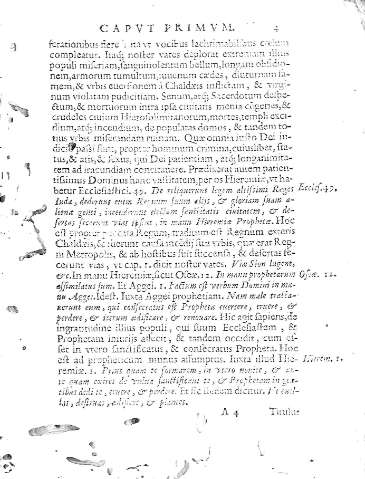 CAPVT PRIMVM. 4
ferationibus flere: ita vt vocibus lachrimabilibus cœlum
compleatur. Itaq; noster vates deplorat extremam illius
populi miseriam, sanguinolentum bellum, longam obsidio-
nem, armorum tumultum, iuuenum cædes, diuturnam fa-
mem, & vrbis euersionem à Chaldæis inflictam, & virgi-
num violatam pudicitiam. Senum, atq; Sacerdotum despe-
ctum, & mortuorum intra ipsa ciuitatis mœnia
crudeles ciuium Hierosolimitanorum, mortes, templi exci-
dium, atq; incendium, depopulatas domos, & tandem to-
tius vrbis miserandam ruinam. Quæ omnia iusto Dei iu-
dicio passi sunt, propter hominum crimina, cuiuslibet, sta-
tus, & ætatis, & sexus, qui Dei patientiam, atq; longanimita-
tem ad iracundiam concitarunt. Prædixerat autem patien-
tissimus Dominus hanc vastitatem, per os Hieremiæ, vt ha-
betur Ecclesiastici. 49. De reliquerunt legem altissimi Reges Eccles. 49.
Iuda, dederunt enim Regnum suum alijs, & gloriam suam a-
lienæ genti, incenderunt electam sanctitatis ciuitatem, & de-
sertas fecerunt vias ipsius, in manu Hieremiæ Prophetæ. Hoc
est propter peccata Regum, traditum est Regnum exteris
Chaldæis, & fuerunt causa incendij istius vrbis, quæ erat Reg-
ni Metropolis, & ab hostibus fuit succensa, & desertas fe-
cerunt vias, vt cap. 1. dicit noster vates. Viæ Sion lugent,
&c. In manu Hieremiæ, sicut Oseæ. 12. In manu prophetarum Oseæ. 12.
assimilatus sum. Et Aggei. 1. Factum est verbum Domini in ma-
nu Aggei. Idest. Iuxta Aggei prophetiam. Nam male tracta-
uerunt eum, qui consecratus est Propheta euertere, eruere, &
perdere, & iterum ædificare, & renouare. Hic agit sapiens, de
ingratitudine illius populi, qui suum Ecclesiastem, &
Prophetam iniurijs affecit, & tandem occidit, cum es-
set in vtero sanctificatus, & consecratus Propheta. Hoc
est ad propheticum munus assumptus. Iuxta illud Hie- Hierem. 1.
remiæ. 1. Prius quam te formarem, in vtero nouite, & an-
te quam exires de vulua sanctificaui te, & Prophetam in gen-
tibus dedi te, eruere, & perdere. Et sic iterum dicitur. Vt euel-
las, destruas, ædifices, & plantes.
A 4 Titulus